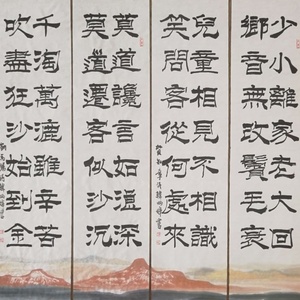 少小離家老大回
鄉音無改鬢毛衰
兒童相見不相識
笑問客從何處來
莫道讒言如浪深
莫道遷客似沙沉
千淘萬漉雖辛苦
吹盡狂沙始到金